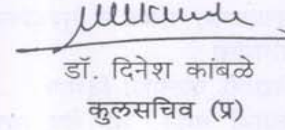 डॉ. दिनेश कांबळे
कुलसचिव (प्र)